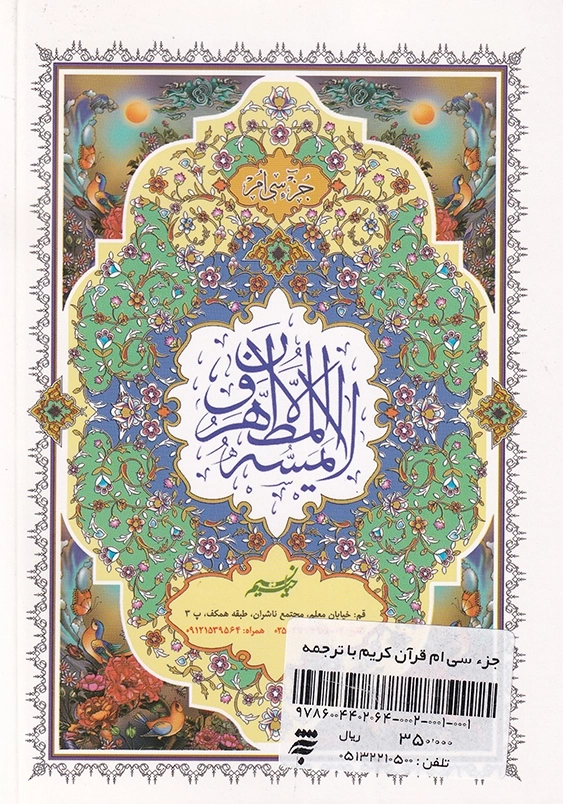 جزء سی ام
لا یمسه الا المطهرون
قم: خیابان معلم، مجتمع ناشران، طبقه همکف، پ ۳
۰۲۵ همراه: ۰۹۱۲۱۵۳۹۵۶۴
جزء سی ام قرآن کریم با ترجمه
۹۷۸۶۰۰۴۴۰۲۰۶۴-۰۰۰۲-۰۰۱-۰۰۰۱
۳۵۰,۰۰۰ ریال
تلفن: ۰۵۱۳۲۲۱۰۵۰۰